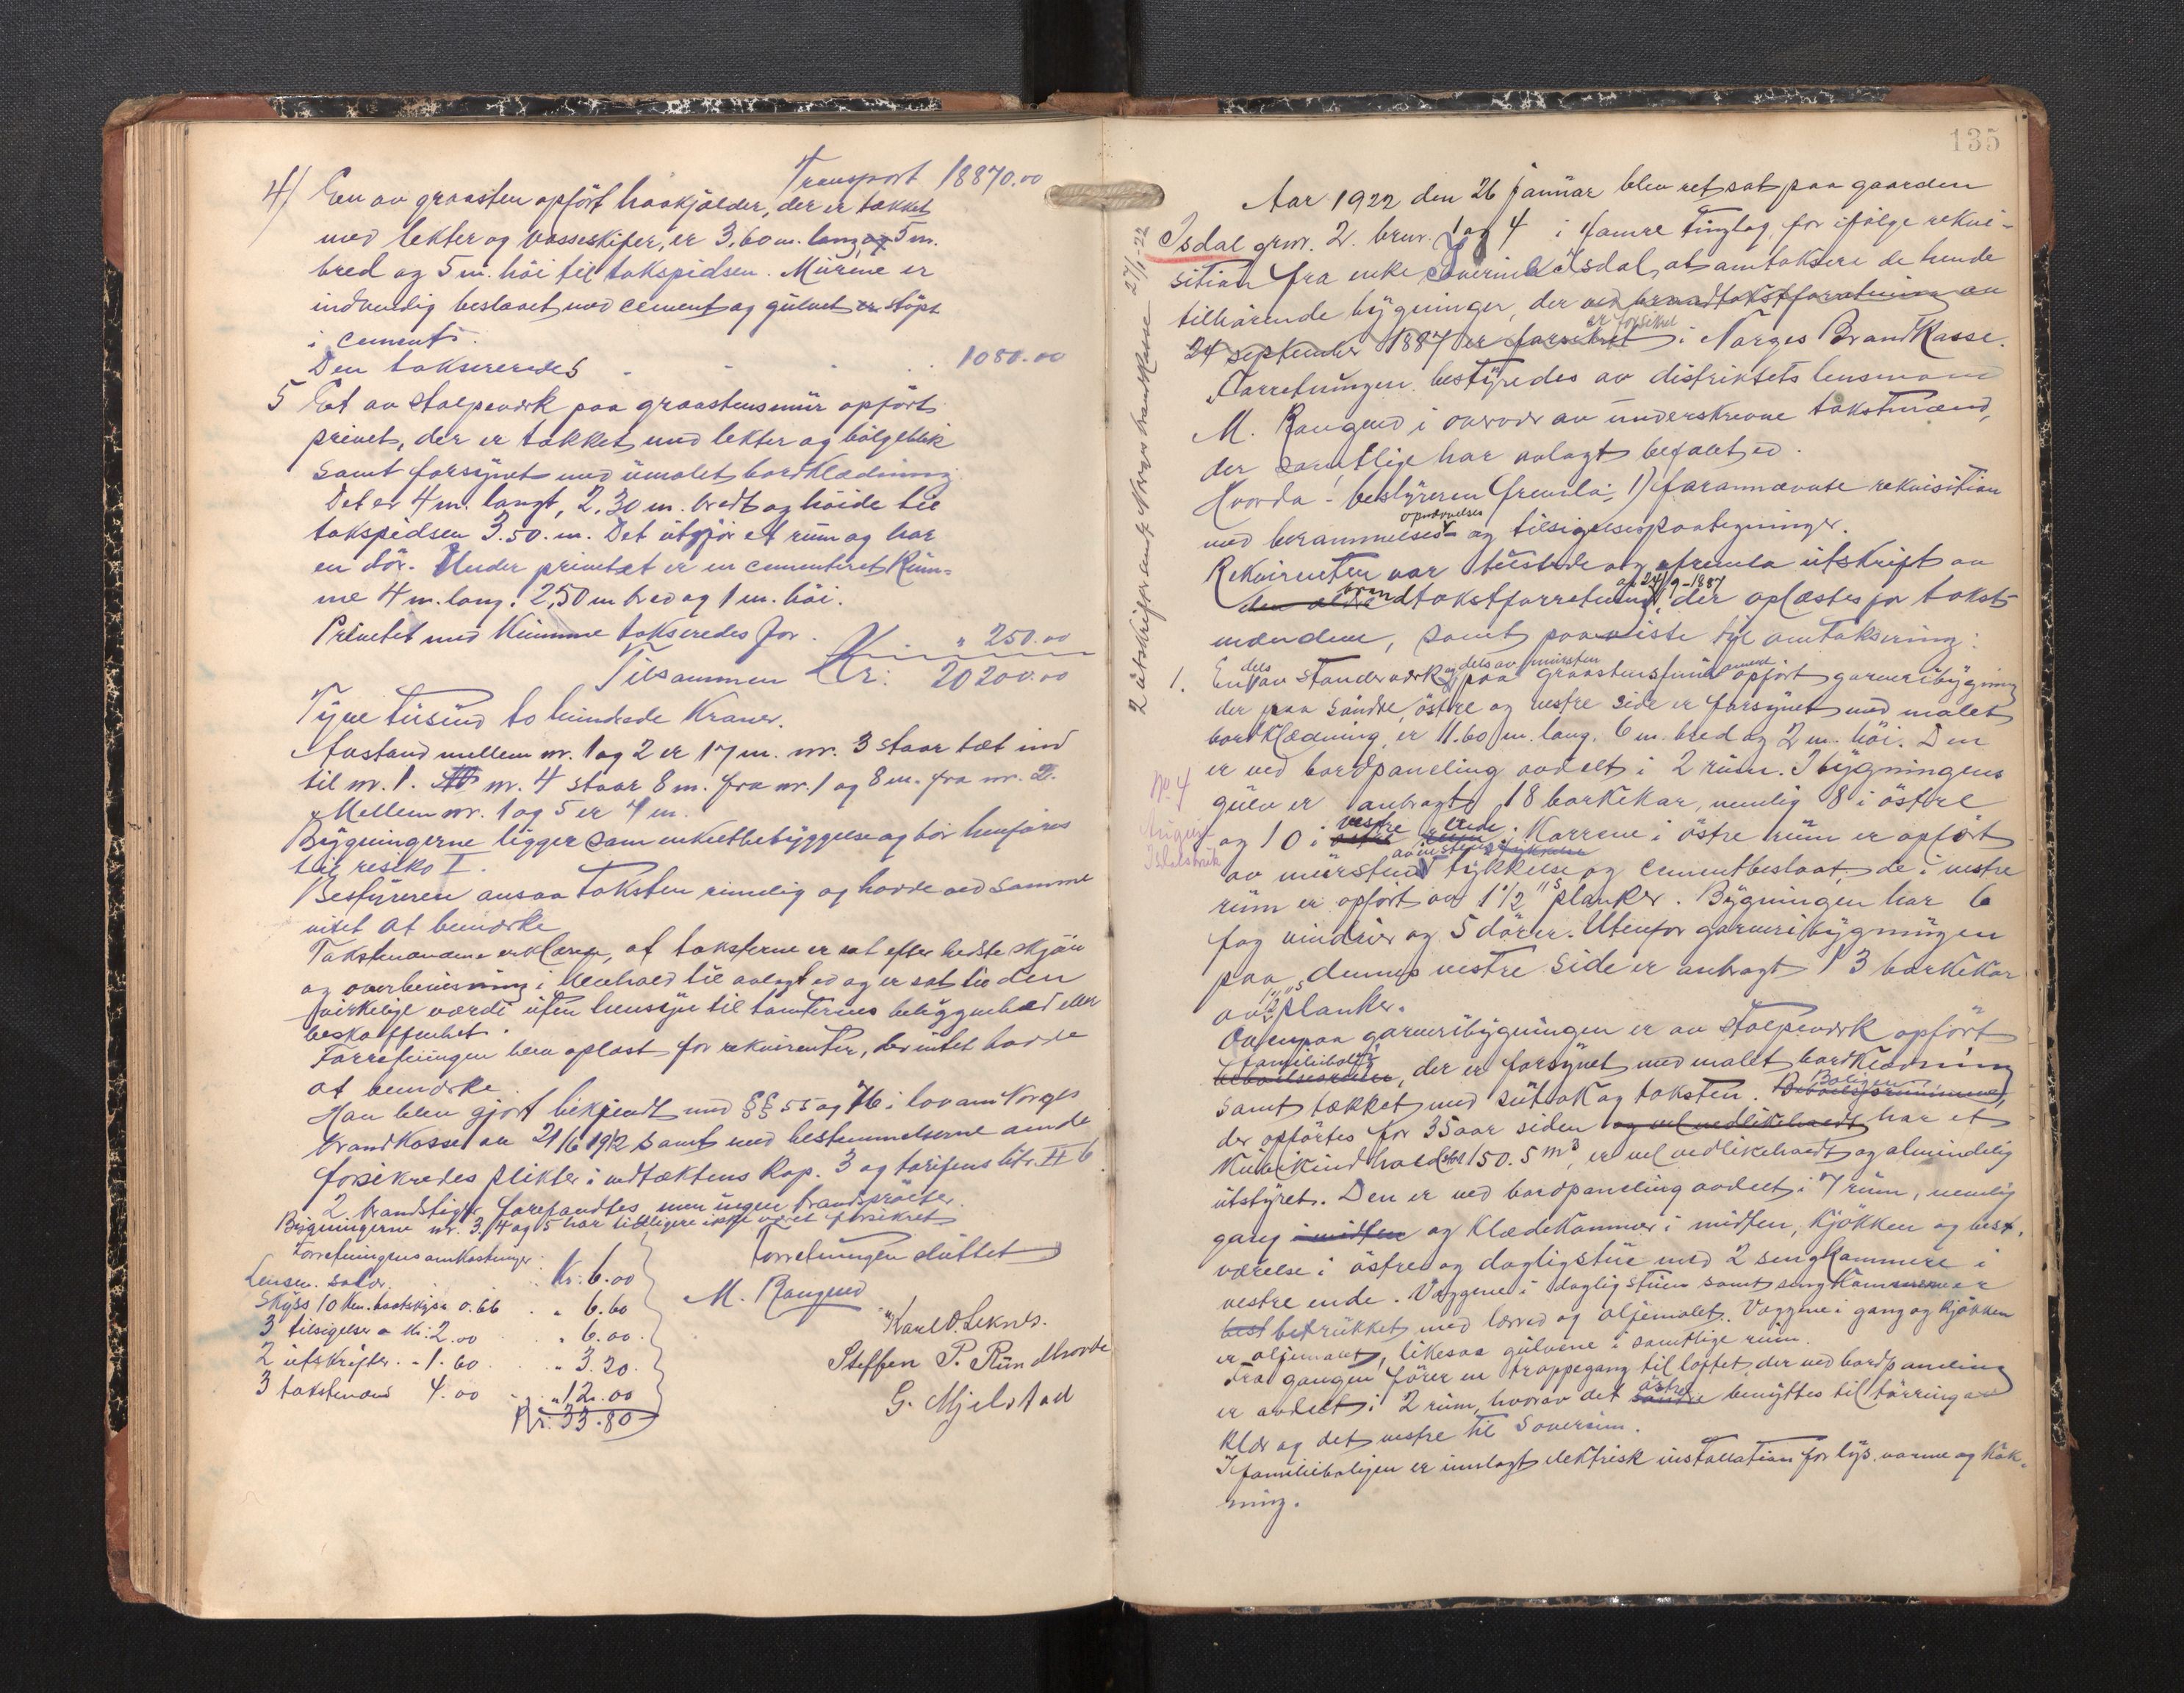 Transport 18870.00
4) En av graasten opfört haakjælder, der er tækket
med lekter og Vosseskifer, er 3,60 m. lang og 5 m.
bred og 5 m. höi til takspidsen. Murene er
indvendig beslaaet med cement og gulvet er stöpt
i cement.
Den takseredes 1080.00
5 Et av stolpeverk paa graastensmur opfört
privet, der er tækket med lekter og bölgeblik
samt forsynet med umalet bordklædning
Det er 4 m. langt, 2,30 m. bredt og höide til
takspidsen 3.50. m. Det utgjör et rum og har
en dör. Under privetet er en cementeret Kum-
me 4 m. lang. 2,50 m bred og 1 m. höi.
Privetet med Kumme takseredes for " 250.00
Tilsammen Kr: 20200.00
Tyve tusind to hundrede Kroner.
Avstand mellem nr. 1 og 2 er 17 m. nr. 3 staar tæt ind
til nr. 1. nr. 4 staar 8 m. fra nr. 1 og 8 m. fra nr. 2.
Mellem nr. 1 og 5 er 4 m.
Bygningerne ligger som enkeltbebyggelse og bör henföres
til risiko I.
Bestyreren ansaa taksten rimelig og havde ved samme
intet at bemerke
Takstmændene erklærer, at taksterne er sat efter bedste skjön
og overbevisning i henhold til avlagt ed og er sat til den
virkelige værdi uten hensyn til tomternes beliggenhed eller
beskaffenhet.
Forretningen blev oplæst for rekvirenten, der intet havde
at bemerke.
Han blev gjort bekjendt med §§ 55 og 76 i lov om Norges
brandkasse av 21/6 1912 samt med bestemmelserne om de
forsikredes plikter i vedtæktens Kap. 3 og tarifens litr. II b
2 brandstiger forefandtes men ingen brandspröiter.
Bygningerne nr. 3, 4 og 5 har tidligere ikke været forsikret
Forretningens omkostninger:
Lensm. salær. Kr: 6.00
Skyss 10 Km. baatskyss a 0.66 " 6.60
3 tilsigelser a Kr: 2.00 " 6.00.
2 utskrifter. - 1.60 " 3.20.
3 takstmænd 4.00 " 12.00
Kr. 33.80
Forretningen sluttet
M. Raugnd
Karl O. Leknes.
Steffen P. Rundhovde
G. Mjelstad
135
2 utskrifter sendt Norges brandkasse 27/1-22
Aar 1922 den 26 januar blev ret sat paa gaarden
Isdal grnr. 2. brnr. 1 og 4 i Hamre Tinglag, for ifölge rekvi-
sition fra enke Severine Isdal at omtaksere de hende
tilhörende bygninger, der ved brandtakstforretning av
24 september 1887 er forsikret i Norges BrandKasse.
er forsikret
Forretningen bestyredes av distriktets lensmand
M. Raugnd i overvær av underskrevne takstmænd,
der samtlige har avlagt befalet ed.
Hvorda! bestyreren fremla: 1) forannævnte rekvisition
opnævnelses
med berammelses- og tilsigelsespaategninger.
Rekvirenten var tilstede og fremla utskrift av
den ældre brandtakstforretning av 24/9-1887, der oplæstes for takst-
mændene, samt paaviste til omtaksering:
1. En dels av Standerverk og dels av mursten paa graastensfundament opfört garveribygning
der paa söndre, östre og vestre side er forsynet med malet
bordklædning, er 11.60 m. lang. 6 m. bred og 2 m. höi. Den
er ved bordpaneling avdelt i 2 rum. I bygningens
No 4
gulv er anbragt 18 barkekar, nemlig 8 i östre
og 10 i östre vestre ende. Karrene i östre rum er opfört
av mursten tykkelse og cementbeslaat, de i vestre
rum er opfört av 1 1/2"s planker. Bygningen har 6
fag vinduer og 5 dörer. Utenfor garveribygningen
paa dennes vestre side er anbragt 13 barkekar
av 1 1/2"s planker.
Ovenpaa garveribygningen er av stolpeverk opfört
Familiebolig
, der er forsynet med malet bordklædning
samt tækket med sutak og taksten. Boligen
der opförtes for 35 aar siden og vel vedlikeholdt har et
Kubikindhold stort 150.5 m3, er vel vedlikeholdt og almindelig
utstyret. Den er ved bordpaneling avdelt i 7 rum, nemlig
gang i midten og Klædekammer i midten, Kjökken og best.
værelse i östre og dagligstue med 2 sengkammere i
vestre ende. Væggene i dagligstuen samt sengkammere er
best betrukket med lerred og oljemalet. Væggene i gang og Kjökken
er oljemalt, likesaa gulvene i samtlige rum.
Fra gangen förer en trappegang til loftet der ved bordpaneling
er avdelt i 2 rum, hvorav det söndre östre benyttes til törring av
Klær og det vestre til Soverum.
I familieboligen er innlagt elektrisk installation for lys. varme og Kok-
ning.